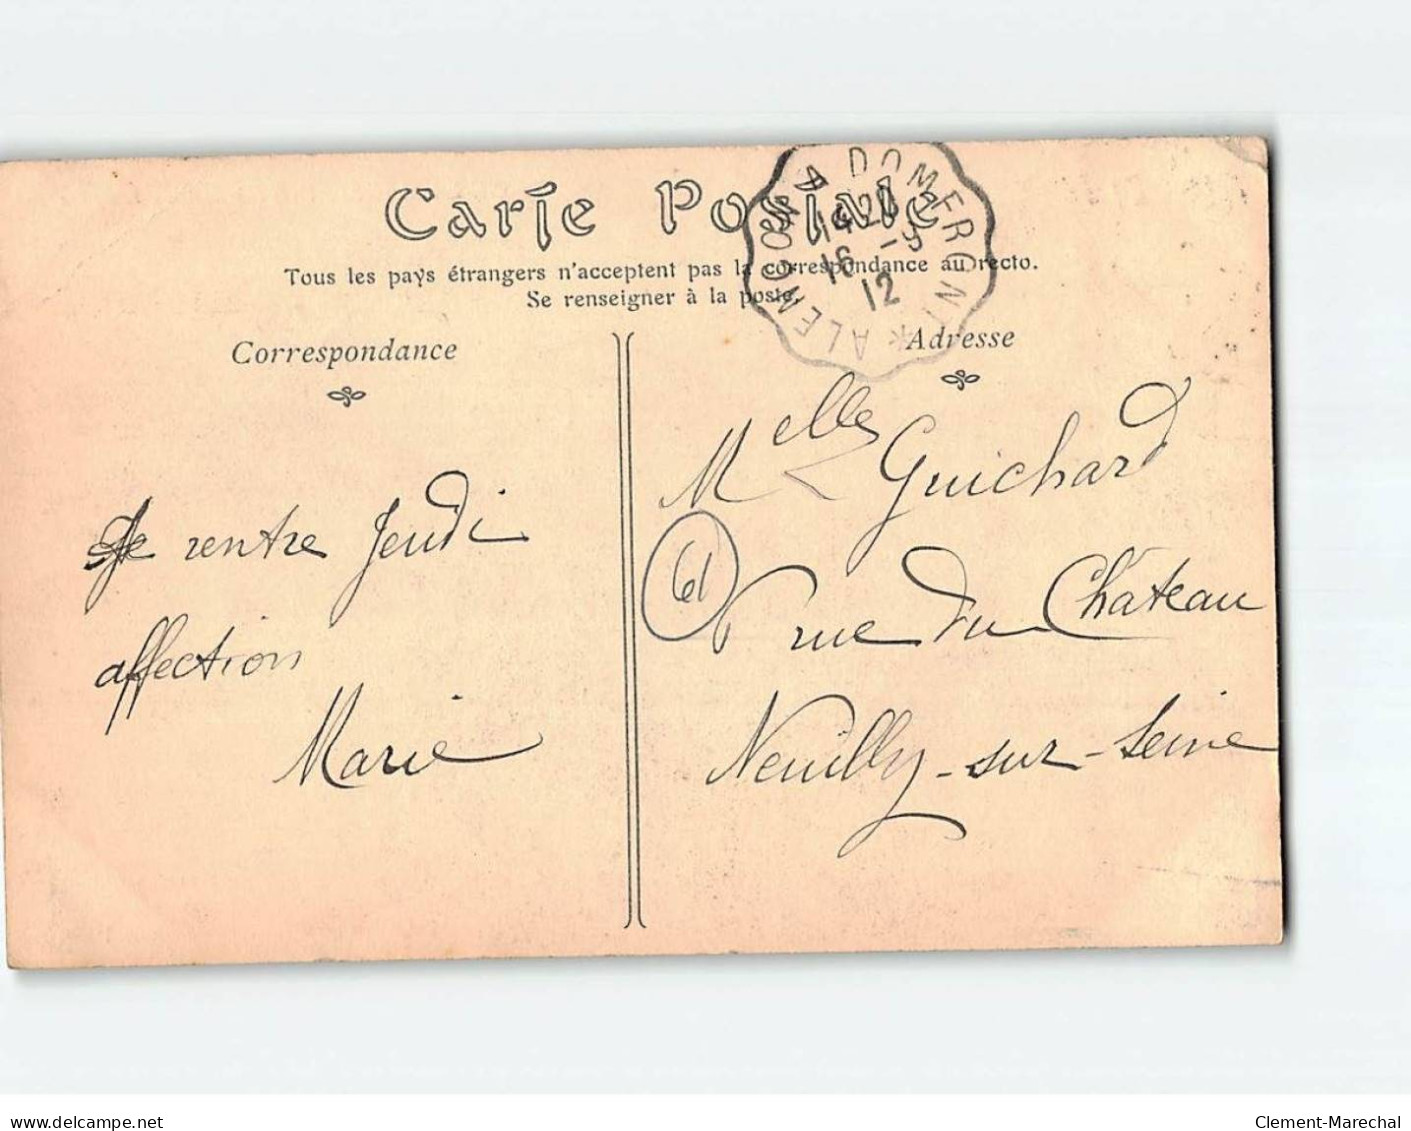 Carte Postale
Tous les pays étrangers n'acceptent pas la correspondance au recto.
Se renseigner à la poste.
ALENÇON A DOMFRONT *
16 -9
12
Correspondance
Je rentre Jeudi
affection
Marie
Adresse
Melle Guichard
61
rue du Château
Neuilly-sur-Seine
www.delcampe.net
Clement-Marechal